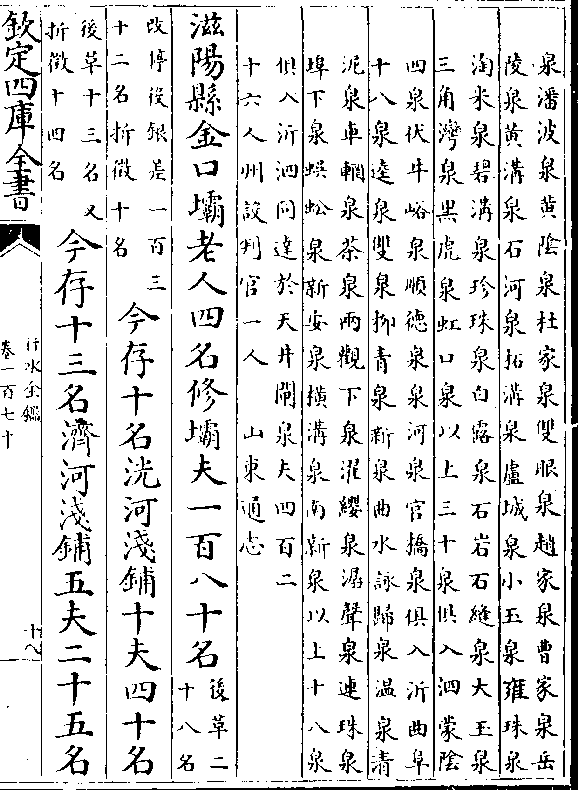 泉潘波泉黄陰泉杜家泉雙眼泉趙家泉曹家泉岳
陵泉黄溝泉石河泉拓溝泉盧城泉小玉泉雍珠泉
淘米泉碧溝泉珍珠泉白露泉石岩石縫泉大玉泉
三角灣泉黑虎泉虹口泉以上三十泉俱入泗蒙陰
四泉伏牛峪泉順德泉泉河泉官橋泉俱入沂曲阜
十八泉逵泉雙泉柳青泉新泉曲水詠歸泉温泉清
泥泉車輞泉茶泉兩觀下泉濯纓泉潺聲泉連珠泉
埠下泉蜈蚣泉新安泉横溝泉南新泉以上十八泉
俱入沂泗同達於天井閘泉夫四百二
十六人州設判官一人 山東通志
滋陽縣金口壩老人四名修壩夫一百八十名
後草二
十八名
改停後銀差一百三
十二名折徵十名
今存十名洸河淺鋪十夫四十名
後草十三名又
折徵十四名
今存十三名濟河淺鋪五夫二十五名
欽定四庫全書
行水金鑑
卷一百七十
十八